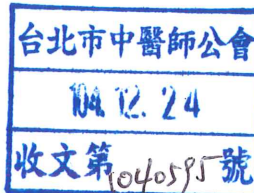 台北市中醫師公會
104. 12. 24
收文第1040595號